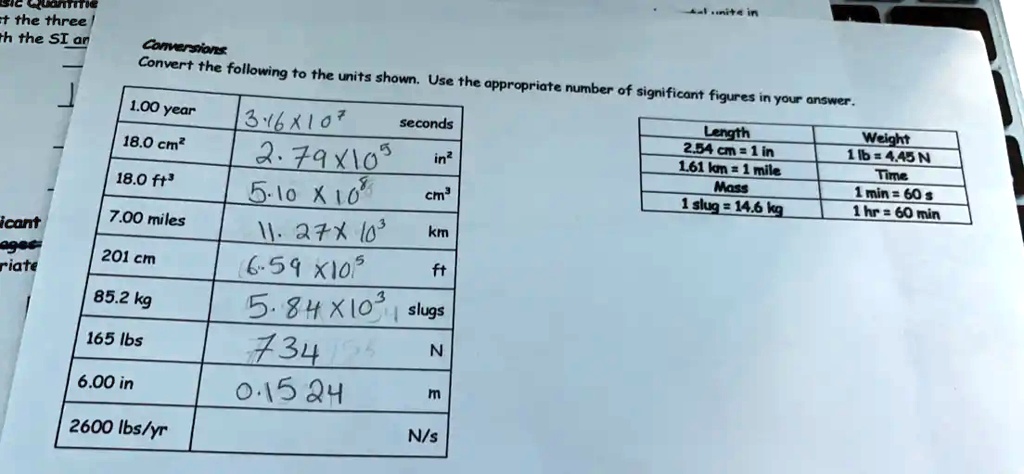 t the three
th the SI an
units in
Conversions
Convert the following to the units shown. Use the appropriate number of significant figures in your answer.
1.00 year 3.16 X 10⁷ seconds
18.0 cm² 2.79 X 10⁵ in²
18.0 ft³ 5.10 X 10⁸ cm³
7.00 miles 11.27 X 10³ km
201 cm 6.59 X 10⁵ ft
85.2 kg 5.84 X 10³ slugs
165 lbs 734 N
6.00 in 0.1524 m
2600 lbs/yr N/s
Length Weight
2.54 cm = 1 in 1 lb = 4.45 N
1.61 km = 1 mile Time
Mass 1 min = 60 s
1 slug = 14.6 kg 1 hr = 60 min
icant
ages
riate